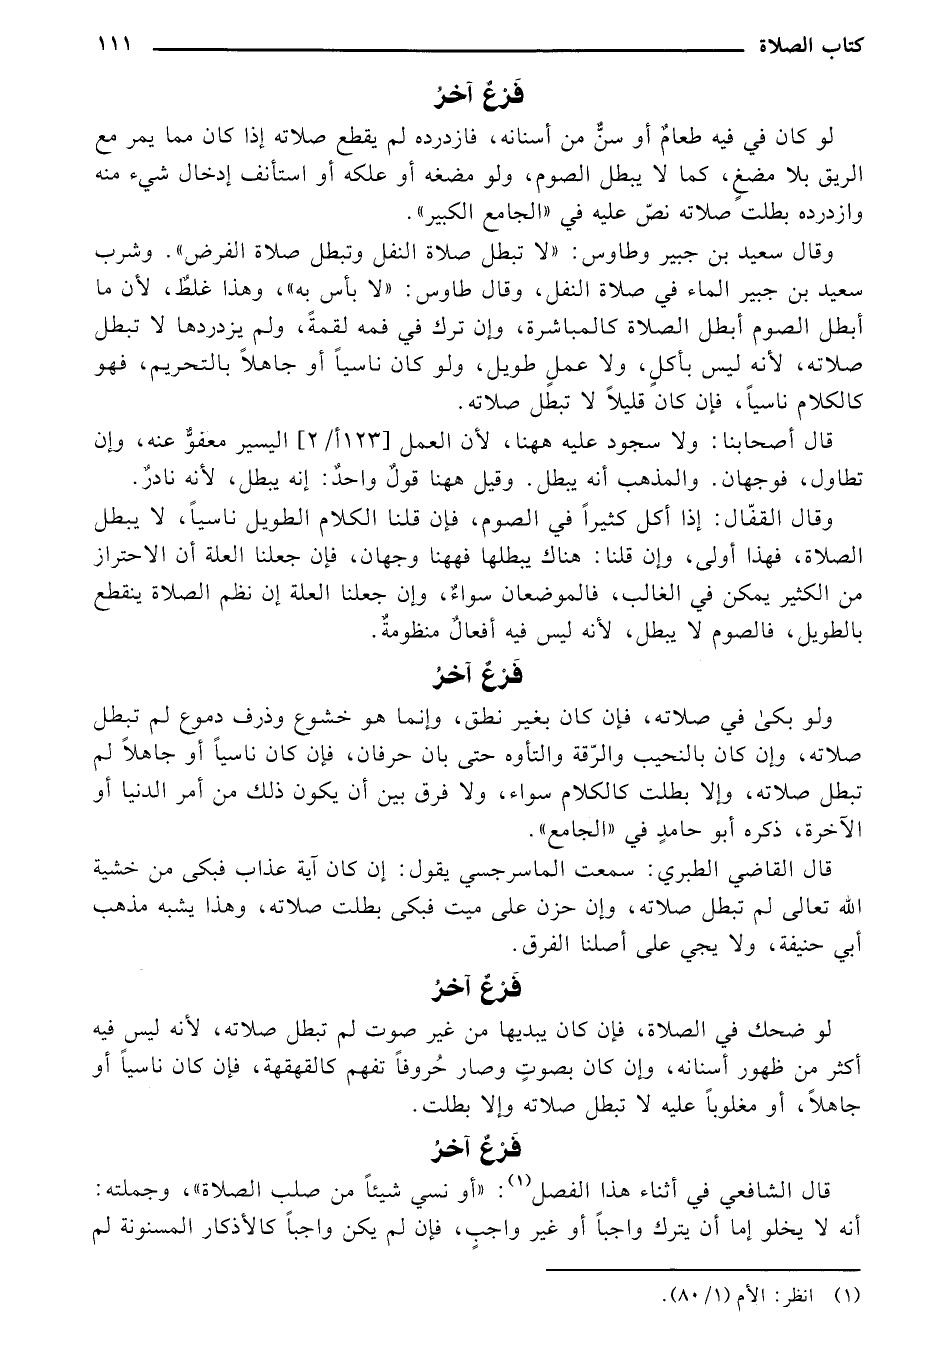 كتاب الصلاة ١١١
فَرْعٌ آخرُ
لو كان في فيه طعامٌ أو سنٌّ من أسنانه، فازدرده لم يقطع صلاته إذا كان مما يمر مع
الريق بلا مضغٍ، كما لا يبطل الصوم، ولو مضغه أو علكه أو استأنف إدخال شيء منه
وازدرده بطلت صلاته نصّ عليه في «الجامع الكبير».
وقال سعيد بن جبير وطاوس: «لا تبطل صلاة النفل وتبطل صلاة الفرض». وشرب
سعيد بن جبير الماء في صلاة النفل، وقال طاوس: «لا بأس به»، وهذا غلطٌ، لأن ما
أبطل الصوم أبطل الصلاة كالمباشرة، وإن ترك في فمه لقمةً، ولم يزدردها لا تبطل
صلاته، لأنه ليس بأكلٍ، ولا عملٍ طويل، ولو كان ناسياً أو جاهلاً بالتحريم، فهو
كالكلام ناسياً، فإن كان قليلاً لا تبطل صلاته.
قال أصحابنا: ولا سجود عليه ههنا، لأن العمل [١٢٣أ/ ٢] اليسير معفوٌّ عنه، وإن
تطاول، فوجهان. والمذهب أنه يبطل. وقيل ههنا قولٌ واحدٌ: إنه يبطل، لأنه نادرٌ.
وقال القفّال: إذا أكل كثيراً في الصوم، فإن قلنا الكلام الطويل ناسياً، لا يبطل
الصلاة، فهذا أولى، وإن قلنا: هناك يبطلها فههنا وجهان، فإن جعلنا العلة أن الاحتراز
من الكثير يمكن في الغالب، فالموضعان سواءٌ، وإن جعلنا العلة إن نظم الصلاة ينقطع
بالطويل، فالصوم لا يبطل، لأنه ليس فيه أفعالٌ منظومةٌ.
فَرْعٌ آخرُ
ولو بكىٰ في صلاته، فإن كان بغير نطق، وإنما هو خشوع وذرف دموع لم تبطل
صلاته، وإن كان بالنحيب والرّقة والتأوه حتى بان حرفان، فإن كان ناسياً أو جاهلاً لم
تبطل صلاته، وإلا بطلت كالكلام سواء، ولا فرق بين أن يكون ذلك من أمر الدنيا أو
الآخرة، ذكره أبو حامدٍ في «الجامع».
قال القاضي الطبري: سمعت الماسرجسي يقول: إن كان آية عذاب فبكى من خشية
الله تعالى لم تبطل صلاته، وإن حزن على ميت فبكى بطلت صلاته، وهذا يشبه مذهب
أبي حنيفة، ولا يجي على أصلنا الفرق.
فَرْعٌ آخرُ
لو ضحك في الصلاة، فإن كان يبديها من غير صوت لم تبطل صلاته، لأنه ليس فيه
أكثر من ظهور أسنانه، وإن كان بصوتٍ وصار حُروفاً تفهم كالقهقهة، فإن كان ناسياً أو
جاهلاً، أو مغلوباً عليه لا تبطل صلاته وإلا بطلت.
فَرْعٌ آخرُ
قال الشافعي في أثناء هذا الفصل(١): «أو نسي شيئاً من صلب الصلاة»، وجملته:
أنه لا يخلو إما أن يترك واجباً أو غير واجبٍ، فإن لم يكن واجباً كالأذكار المسنونة لم
(١) انظر: الأم (١/ ٨٠).